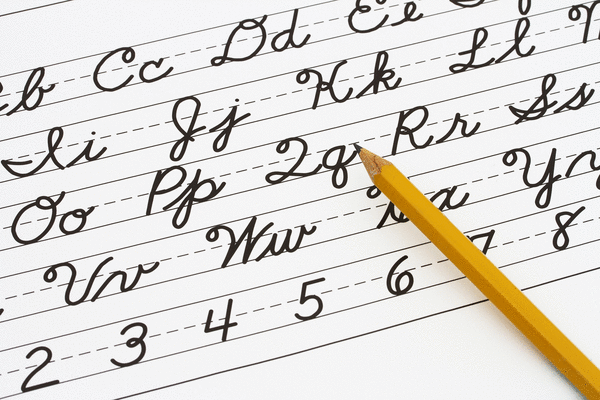 Cc Dd Ee
Ii Jj Kk Ll
Oo Pp Qq Rr Ss
Vv Ww Yy
2 3 4 5 6 7 8